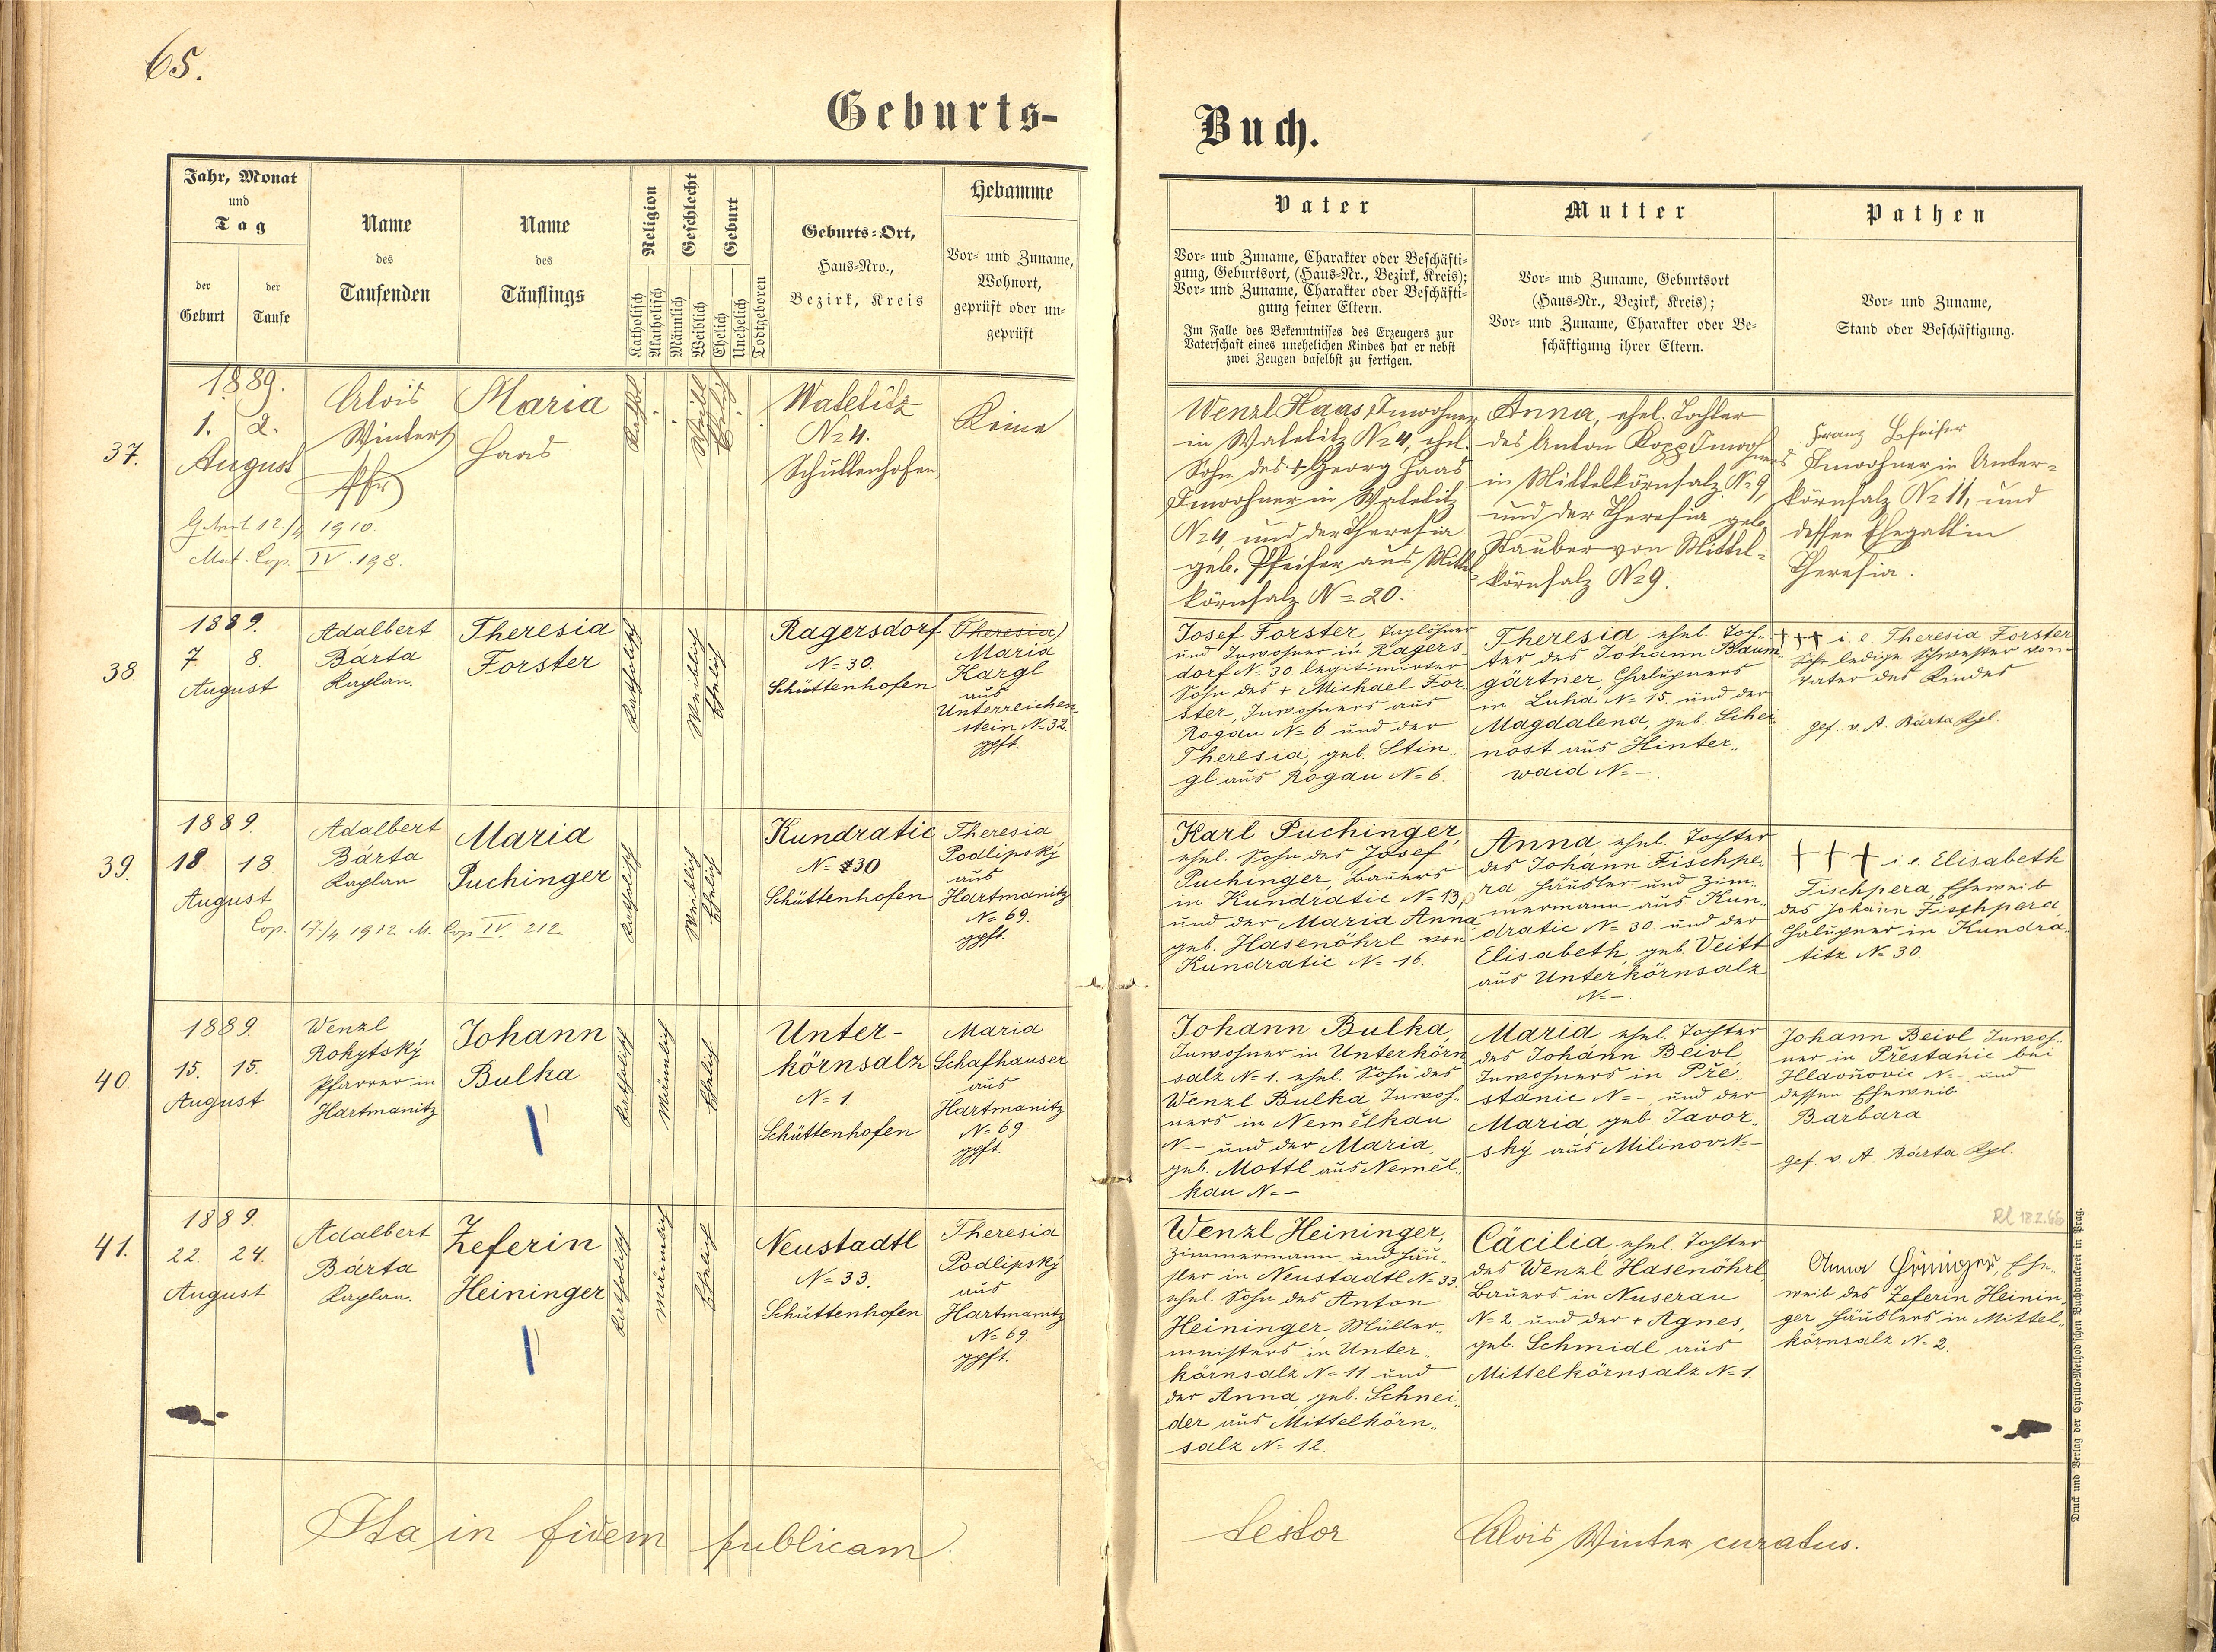 65.
Geburts-
Buch.
Jahr, Monat
und
Tag
der
Geburt
der
Taufe
Name
des
Taufenden
Name
des
Täuflings
Religion
Katholisch
Akatholisch
Geschlecht
Männlich
Weiblich
Geburt
Ehelich
Unehelich
Todtgeboren
Geburts-Ort,
Haus-Nro.,
Bezirk, Kreis
Hebamme
Vor- und Zuname,
Wohnort,
geprüft oder un-
geprüft
Vater
Vor- und Zuname, Charakter oder Beschäfti-
gung, Geburtsort, (Haus-Nr., Bezirk, Kreis);
Vor- und Zuname, Charakter oder Beschäfti-
gung seiner Eltern.
Im Falle des Bekenntnisses des Erzeugers zur
Vaterschaft eines unehelichen Kindes hat er nebst
zwei Zeugen daselbst zu fertigen.
Mutter
Vor- und Zuname, Geburtsort
(Haus-Nr., Bezirk, Kreis);
Vor- und Zuname, Charakter oder Be-
schäftigung ihrer Eltern.
Pathen
Vor- und Zuname,
Stand oder Beschäftigung.
37.
1889.
1. 2.
August
Alois
Winter
Pfr
Maria
Haas
Kathol.
Weibl
Ehelich
Watetitz
N= 4.
Schüttenhofen
Keine
12./4 1910.
Mat. Cop. IV. 198.
Wenzl Haas, Inwohner
in Watetitz N= 4, ehel.
Sohn des + Georg Haas
Inwohner in Watetitz
N= 4 und der Theresia
geb. Pfeifer aus Mittel-
körnsalz N= 20.
Anna, ehel. Tochter
des Anton Kopp Inwohners
in Mittelkörnsalz N= 9,
und der Theresia geb.
Stauber von Mittel-
körnsalz N= 9.
Franz Pfeifer
Inwohner in Unter-
körnsalz N= 11, und
dessen Ehegattin
Theresia.
38
1889.
7. 8.
August
Adalbert
Bárta
Kaplan.
Theresia
Forster
Katholisch
Weiblich
Ehelich
Ragersdorf
N= 30.
Schüttenhofen
(Theresia)
Maria
Kargl
aus
Unterreichen
stein N= 32.
gpft.
Josef Forster, Taglöhner
und Inwohner in Ragers
dorf N= 30. legitimirter
Sohn des + Michael For
ster, Inwohners aus
Rogau N= 6. und der
Theresia, geb. Stin„
gl aus Rogau N= 6.
Theresia, ehel. Toch„
ter des Johann Baum
gärtner, Chalupners
in Luha N= 15. und der
Magdalena, geb. Schei
nost aus Hinter„
waid N= –.
+++ i. e. Theresia Forster
ledige Schwester vom
Vater des Kindes
gef. v. A. Bárta Kpl.
39.
1889.
18 18
August
Adalbert
Bárta
Kaplan
Maria
Puchinger
Katholisch
Weiblich
Ehelich
Kundratic
N= 30
Schüttenhofen
Theresia
Podlipský
aus
Hartmanitz
N= 69.
gpft.
Cop. 17./4. 1912 M. Cop IV. 212
Karl Puchinger,
ehel. Sohn des Josef
Puchinger, Bauers
in Kundratic N= 13,
und der Maria Anna
geb. Hasenöhrl von
Kundratic N= 16.
Anna ehel. Tochter
des Johann Fischpe„
ra Häusler und Zim„
mermann aus Kun„
dratic N= 30. und der
Elisabeth, geb. Veitt
aus Unterkörnsalz
N= –.
+++ i. e. Elisabeth
Fischpera Eheweib
des Johann Fischpera
Chalupner in Kundra„
titz N= 30.
40.
1889.
15. 15.
August
Wenzl
Rohytský
Pfarrer in
Hartmanitz
Johann
Bulka
Katholisch
Männlich
Ehelich
Unter-
körnsalz
N= 1
Schüttenhofen
Maria
Schafhauser
aus
Hartmanitz
N= 69
gpft.
Johann Bulka,
Inwohner in Unterkörn
salz N= 1. ehel. Sohn des
Wenzl Bulka Inwoh„
ners in Nemělkau
N= – und der Maria,
geb. Mottl aus Neměl„
kau N= –
Maria ehel. Tochter
des Johann Beivl
Inwohners in Pře„
stanic N= –, und der
Maria, geb. Javor„
ský aus Milinov N= –
Johann Beivl Inwoh„
ner in Přestanic bei
Hlavňovic N= – und
dessen Eheweib
Barbara
gef. v. A. Bárta Kpl.
41.
1889.
22. 24.
August
Adalbert
Bárta
Kaplan.
Zeferin
Heininger
Katholisch
Männlich
Ehelich
Neustadtl
N= 33.
Schüttenhofen
Theresia
Podlipský
aus
Hartmanitz
N= 69.
gpft.
Wenzl Heininger,
Zimmermann und Häu„
sler in Neustadtl N= 33.
ehel. Sohn des Anton
Heininger, Müller„
meisters in Unter„
körnsalz N= 11. und
der Anna, geb. Schnei„
der aus Mittelkörn„
salz N= 12.
Cäcilia ehel. Tochter
des Wenzl Hasenöhrl
Bauers in Nuserau
N= 2. und der + Agnes,
geb. Schmidl aus
Mittelkörnsalz N= 1.
Rl 18.2.66
Anna Heininger, Ehe„
weib des Zeferin Heinin„
ger Häuslers in Mittel„
körnsalz N= 2.
Ita in fidem publicam
testor Alois Winter curatus.
Druck und Verlag der Cyrillo-Method'schen Buchdruckerei in Prag.